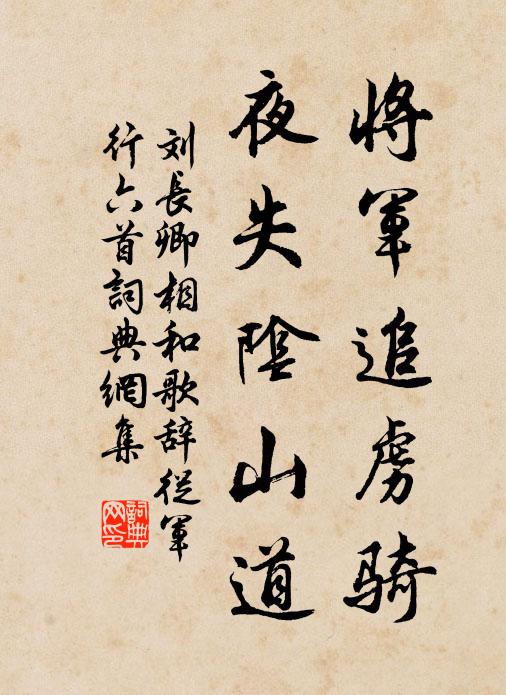 將軍追虜騎
夜失陰山道
刘長卿相和歌辞從軍
行六首詞典網集
詞典网印